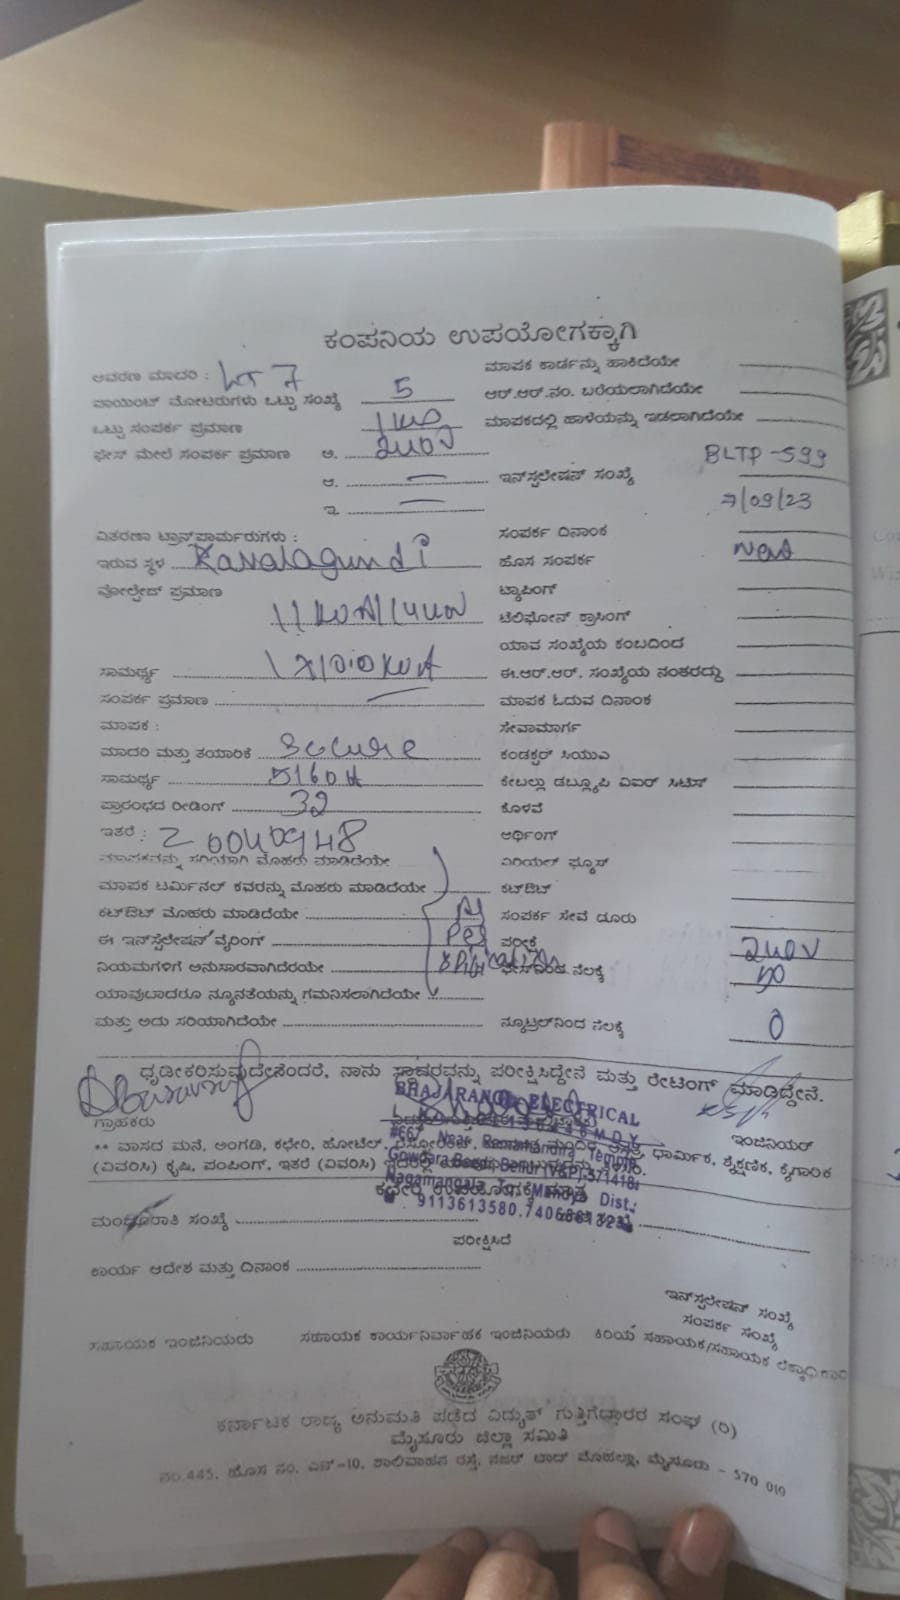 ಕಂಪನಿಯ ಉಪಯೋಗಕ್ಕಾಗಿ
ಆವರಣ ಮಾದರಿ : LT 7 ಮಾಪಕ ಕಾರ್ಡನ್ನು ಹಾಕಿದೆಯೇ
ಪಾಯಿಂಟ್ ಮೋಟರುಗಳು ಒಟ್ಟು ಸಂಖ್ಯೆ 5 ಆರ್.ಆರ್.ನಂ. ಬರೆಯಲಾಗಿದೆಯೇ
ಒಟ್ಟು ಸಂಪರ್ಕ ಪ್ರಮಾಣ ಮಾಪಕದಲ್ಲಿ ಹಾಳೆಯನ್ನು ಇಡಲಾಗಿದೆಯೇ
ಫೇಸ್ ಮೇಲೆ ಸಂಪರ್ಕ ಪ್ರಮಾಣ ಅ. 240V
ಆ. ಇನ್‌ಸ್ಟಲೇಷನ್ ಸಂಖ್ಯೆ BLTP-599
ಇ 7/09/23
ವಿತರಣಾ ಟ್ರಾನ್ಸ್‌ಫಾರ್ಮರುಗಳು : ಸಂಪರ್ಕ ದಿನಾಂಕ
ಇರುವ ಸ್ಥಳ Kavalagundi ಹೊಸ ಸಂಪರ್ಕ New
ವೋಲ್ಟೇಜ್ ಪ್ರಮಾಣ ಟ್ಯಾಪಿಂಗ್
ಟೆಲಿಫೋನ್ ಕ್ರಾಸಿಂಗ್
ಯಾವ ಸಂಖ್ಯೆಯ ಕಂಬದಿಂದ
ಸಾಮರ್ಥ್ಯ ಈ.ಆರ್.ಆರ್. ಸಂಖ್ಯೆಯ ನಂತರದ್ದು
ಸಂಪರ್ಕ ಪ್ರಮಾಣ ಮಾಪಕ ಓದುವ ದಿನಾಂಕ
ಮಾಪಕ : ಸೇವಾಮಾರ್ಗ
ಮಾದರಿ ಮತ್ತು ತಯಾರಿಕೆ Secure ಕಂಡಕ್ಟರ್ ಸಿಯುಎ
ಸಾಮರ್ಥ್ಯ ಕೇಬಲ್ಲು ಡಬ್ಲ್ಯೂಪಿ ವಿಐಆರ್ ಸಿಟಿಸ್
ಪ್ರಾರಂಭದ ರೀಡಿಂಗ್ 32 ಕೊಳವೆ
ಇತರೆ : ಆರ್ಥಿಂಗ್
ಮಾಪಕವನ್ನು ಸರಿಯಾಗಿ ಮೊಹರು ಮಾಡಿದೆಯೇ ಏರಿಯಲ್ ಫ್ಯೂಸ್
ಮಾಪಕ ಟರ್ಮಿನಲ್ ಕವರನ್ನು ಮೊಹರು ಮಾಡಿದೆಯೇ ಕಟ್‌ಔಟ್
ಕಟ್‌ಔಟ್ ಮೊಹರು ಮಾಡಿದೆಯೇ As ಸಂಪರ್ಕ ಸೇವೆ ದೂರು
ಈ ಇನ್‌ಸ್ಟೆಲೇಷನ್ ವೈರಿಂಗ್ Per ಪರೀಕ್ಷೆ 240V
ನಿಯಮಗಳಿಗೆ ಅನುಸಾರವಾಗಿದೆಯೇ ನೆಲಕ್ಕೆ
ಯಾವುದಾದರೂ ನ್ಯೂನತೆಯನ್ನು ಗಮನಿಸಲಾಗಿದೆಯೇ
ಮತ್ತು ಅದು ಸರಿಯಾಗಿದೆಯೇ ನ್ಯೂಟ್ರಲ್‌ನಿಂದ ನೆಲಕ್ಕೆ 0
ಧೃಡೀಕರಿಸುವುದೇನೆಂದರೆ, ನಾನು ಸ್ಥಾವರವನ್ನು ಪರೀಕ್ಷಿಸಿದ್ದೇನೆ ಮತ್ತು ರೇಟಿಂಗ್ ಮಾಡಿದ್ದೇನೆ.
BHAJARANGI ELECTRICAL
ಗ್ರಾಹಕರು ಇಂಜಿನಿಯರ್
** ವಾಸದ ಮನೆ, ಅಂಗಡಿ, ಕಛೇರಿ, ಹೋಟೆಲ್, ಧಾರ್ಮಿಕ, ಶೈಕ್ಷಣಿಕ, ಕೈಗಾರಿಕ
#667, Near Ramamandira Temple,
(ವಿವರಿಸಿ) ಕೃಷಿ, ಪಂಪಿಂಗ್, ಇತರೆ (ವಿವರಿಸಿ)
Gowdara Beedi, Bellur (V&P),571418.
Nagamangala Tq, Mandya Dist.
9113613580.7406881323
ಮಂಜೂರಾತಿ ಸಂಖ್ಯೆ
ಪರೀಕ್ಷಿಸಿದೆ
ಕಾರ್ಯ ಆದೇಶ ಮತ್ತು ದಿನಾಂಕ
ಇನ್‌ಸ್ಟಲೇಷನ್ ಸಂಖ್ಯೆ
ಸಂಪರ್ಕ ಸಂಖ್ಯೆ
ಸಹಾಯಕ ಇಂಜಿನಿಯರು ಸಹಾಯಕ ಕಾರ್ಯನಿರ್ವಾಹಕ ಇಂಜಿನಿಯರು ಕಿರಿಯ ಸಹಾಯಕ/ಸಹಾಯಕ ಲೆಕ್ಕಾಧಿಕಾರಿ
ಕರ್ನಾಟಕ ರಾಜ್ಯ ಅನುಮತಿ ಪಡೆದ ವಿದ್ಯುತ್ ಗುತ್ತಿಗೆದಾರರ ಸಂಘ (ರಿ)
ಮೈಸೂರು ಜಿಲ್ಲಾ ಸಮಿತಿ
ನಂ.445, ಹೊಸ ನಂ. ಎನ್-10, ಶಾಲಿವಾಹನ ರಸ್ತೆ, ನಜರ್ ಬಾದ್ ಮೊಹಲ್ಲಾ, ಮೈಸೂರು - 570 010